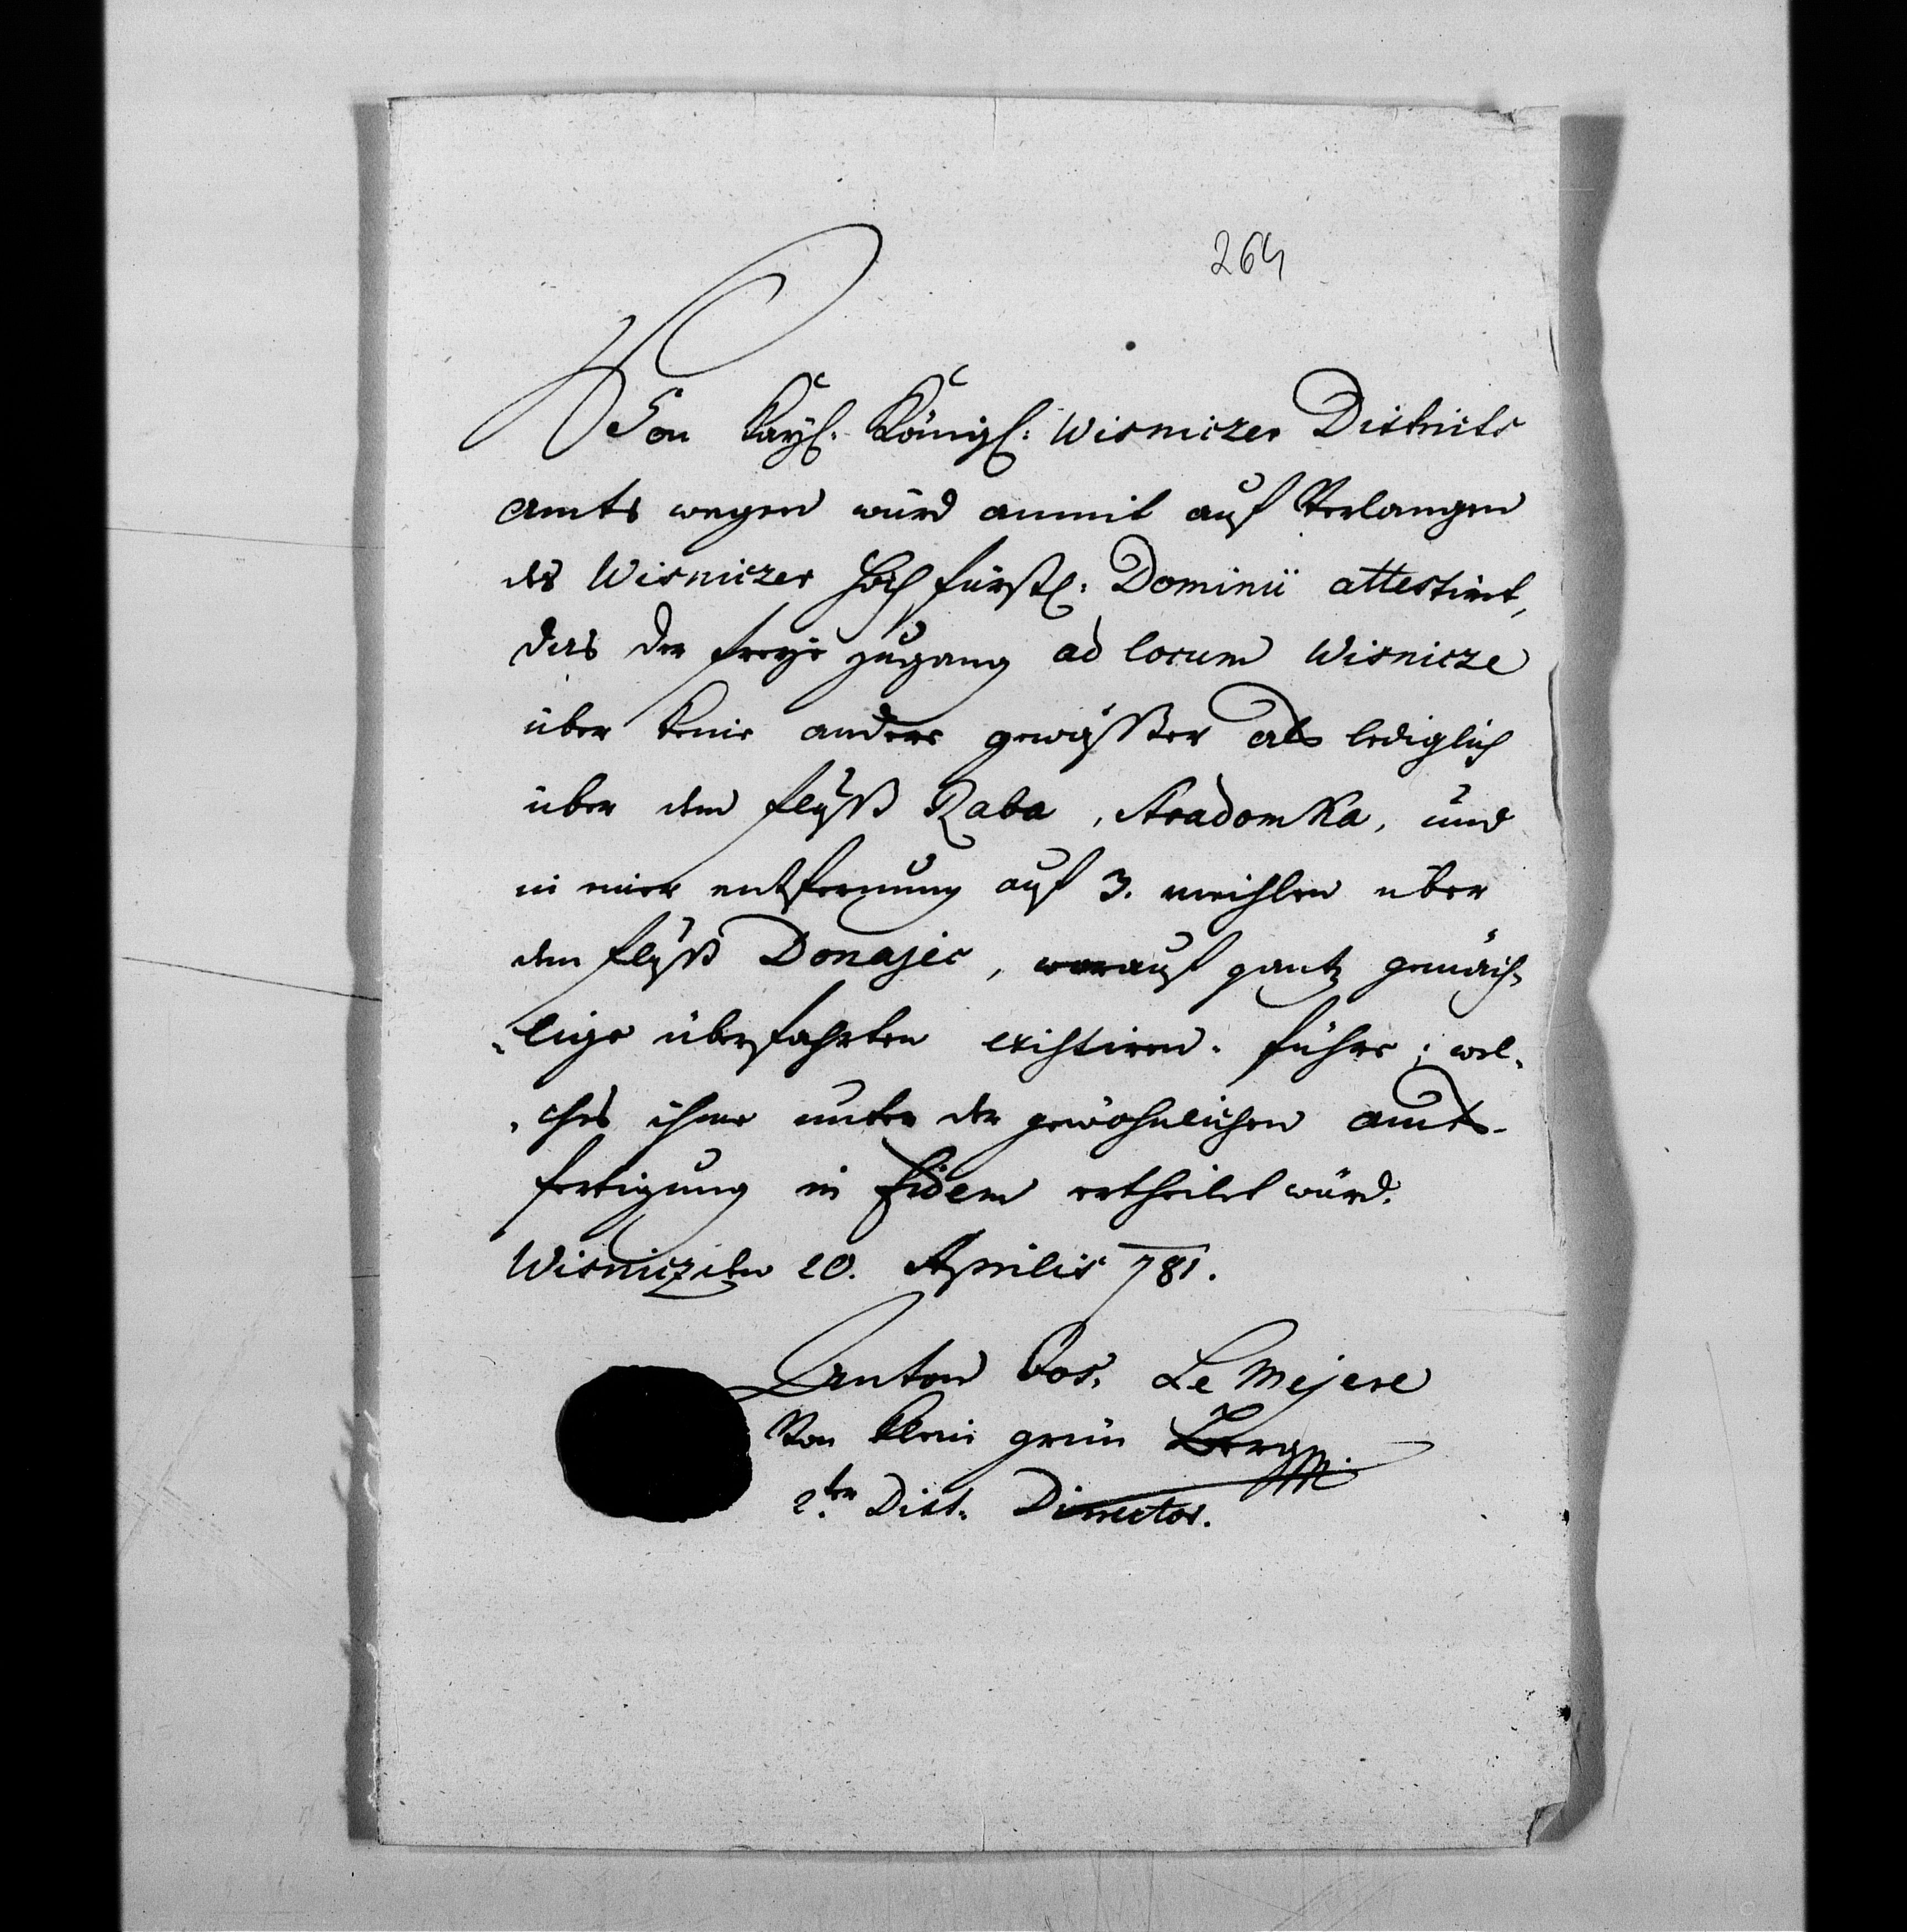 264
Von Kayl: Königl: Wisniczer Districts
amts wegen wird anmit auf Verlangen
des Wisniczer Hochfürstl: Dominii attestirt,
das der freye zugang ad locum Wisnicze
über keine andere gewässer als lediglich
über den fluß Raba, Stradomka, und
in einer entfernung auf 3. meihlen über
den fluß Donajec, worauf gantz gemäch-
lige überfahrten existiren. führe; wel-
ches ihme unter der gewöhnlichen amts-
fertigung in fidem ertheilet würd.
Wisnicz den 20. Aprilis 781.
Anton Le Mejere
Von Klein grün Berg
2ter Dist. Director.